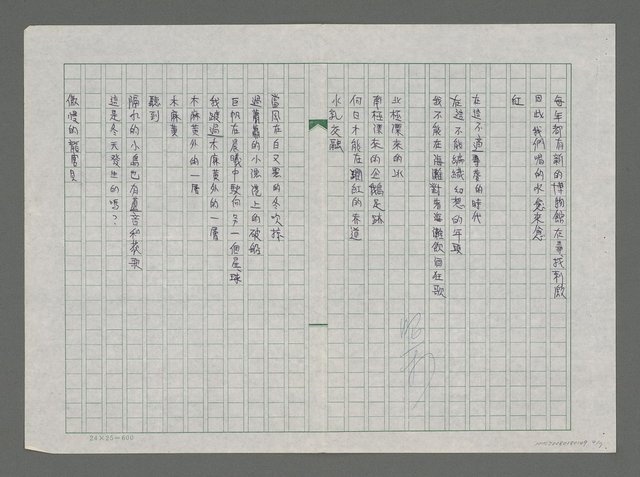 每年都有新的博物館在尋找刺激
因此我們喝的水愈來愈
紅
在這不適尋春的時代
在這不能編織幻想的年頭
我不能在海灘對著海灘飲自在歌
北極漂來的冰
南極漂來的企鵝足跡
何日才能在
紅的春道
水乳交融
當風在白又寒的冬吹掠
過舊舊的小漁港上的破船
巨帆在晨曦中駛向另一個星球
我跳過木麻黃外的一層
木麻黃外的一層
木麻黃
聽到
隔水的小島也有 音和 歌
這是冬天發生的嗎？
傲慢的龍寶貝
24×25=600